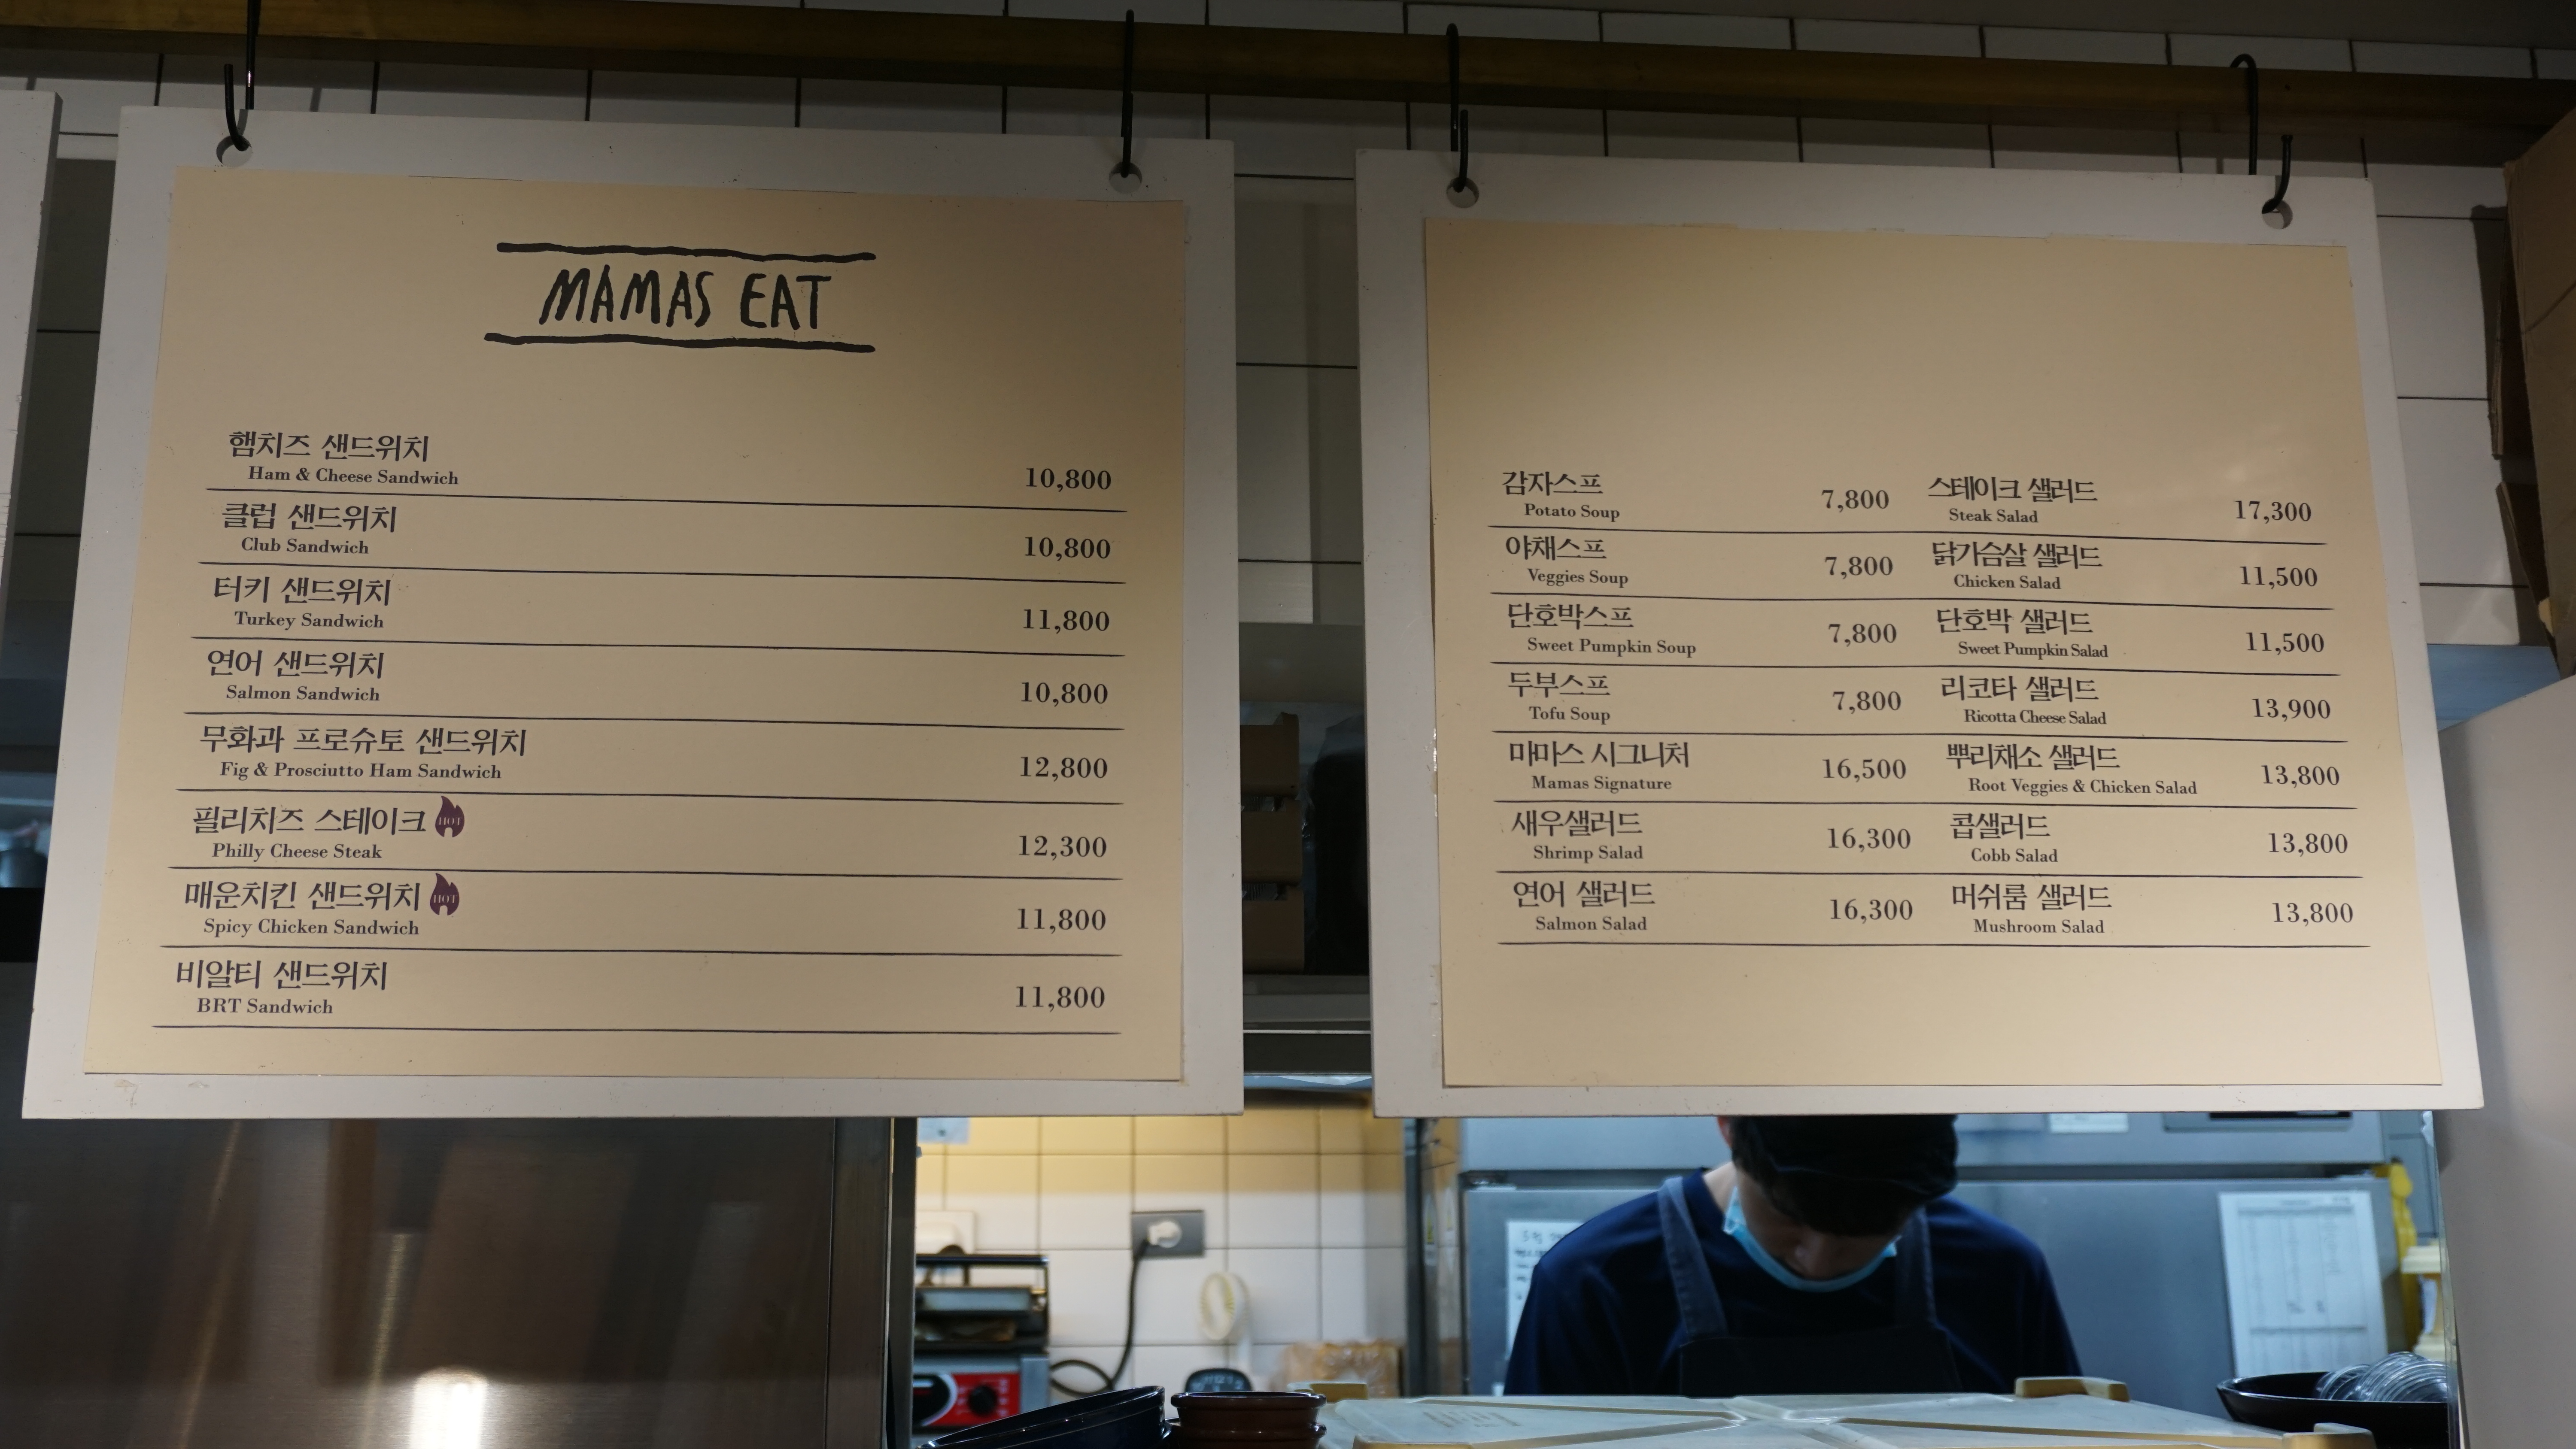 MAMAS EAT
햄치즈 샌드위치
Ham & Cheese Sandwich 10,800
클럽 샌드위치
Club Sandwich 10,800
터키 샌드위치
Turkey Sandwich 11,800
연어 샌드위치
Salmon Sandwich 10,800
무화과 프로슈토 샌드위치
Fig & Prosciutto Ham Sandwich 12,800
필리치즈 스테이크 HOT
Philly Cheese Steak 12,300
매운치킨 샌드위치 HOT
Spicy Chicken Sandwich 11,800
비알티 샌드위치
BRT Sandwich 11,800
감자스프
Potato Soup 7,800
야채스프
Veggies Soup 7,800
단호박스프
Sweet Pumpkin Soup 7,800
두부스프
Tofu Soup 7,800
마마스 시그니처
Mamas Signature 16,500
새우샐러드
Shrimp Salad 16,300
연어 샐러드
Salmon Salad 16,300
스테이크 샐러드
Steak Salad 17,300
닭가슴살 샐러드
Chicken Salad 11,500
단호박 샐러드
Sweet Pumpkin Salad 11,500
리코타 샐러드
Ricotta Cheese Salad 13,900
뿌리채소 샐러드
Root Veggies & Chicken Salad 13,800
콥샐러드
Cobb Salad 13,800
머쉬룸 샐러드
Mushroom Salad 13,800